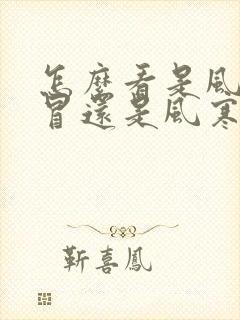 怎麼看是風
冒還是風寒
靳喜鳳